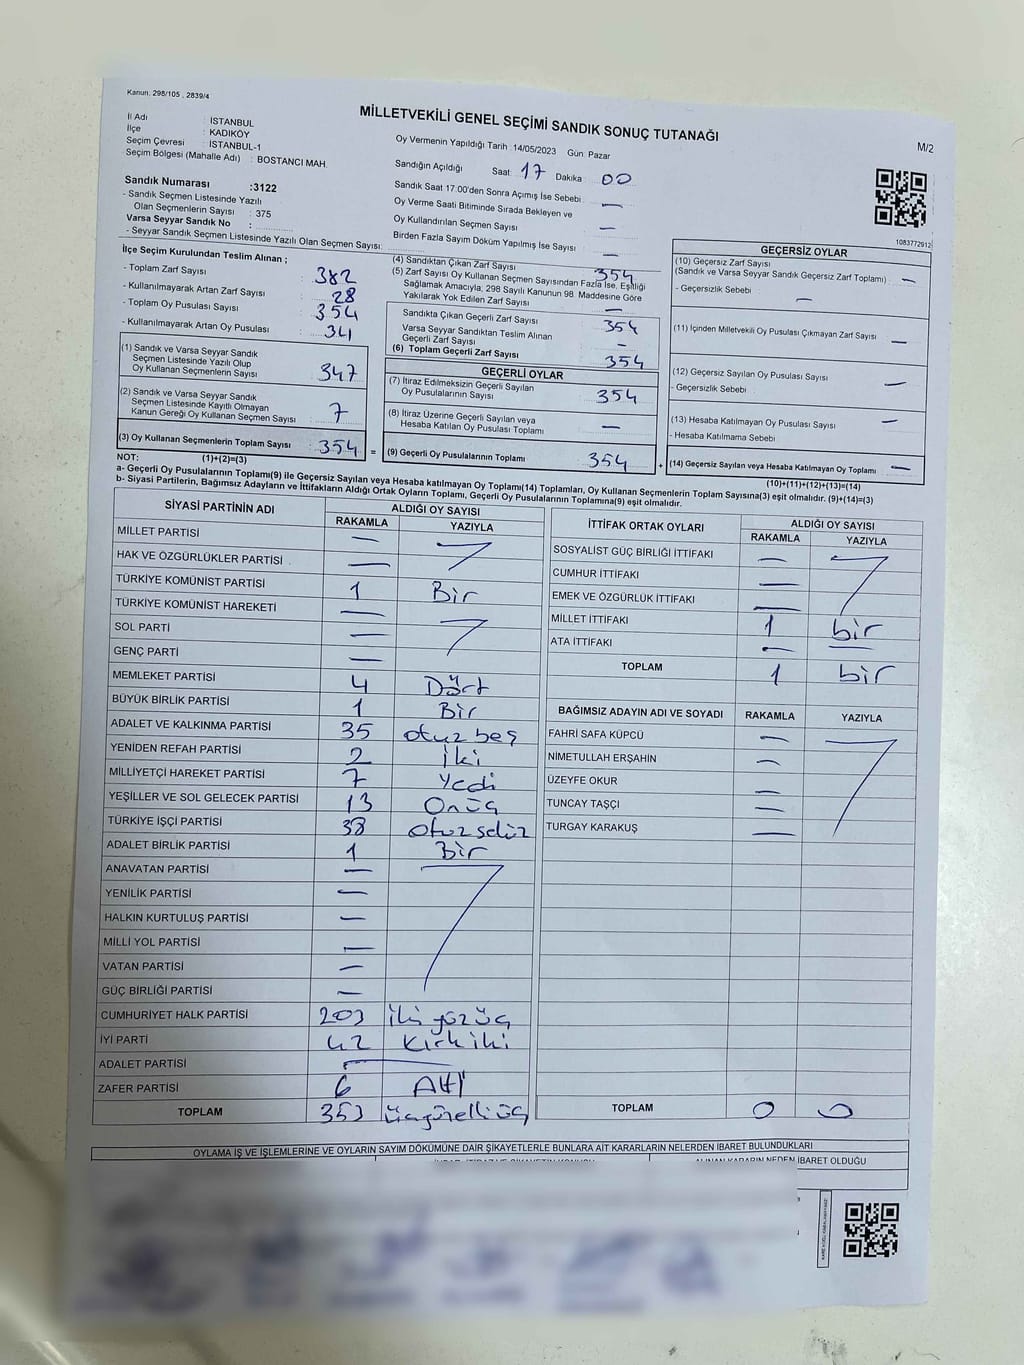 Kanun: 298/105 , 2839/4
MİLLETVEKİLİ GENEL SEÇİMİ SANDIK SONUÇ TUTANAĞI
M/2
İl Adı : İSTANBUL
İlçe : KADIKÖY
Seçim Çevresi : İSTANBUL-1
Seçim Bölgesi (Mahalle Adı) : BOSTANCI MAH.
Sandık Numarası :3122
- Sandık Seçmen Listesinde Yazılı
Olan Seçmenlerin Sayısı : 375
Varsa Seyyar Sandık No :
- Seyyar Sandık Seçmen Listesinde Yazılı Olan Seçmen Sayısı:
Oy Vermenin Yapıldığı Tarih :14/05/2023 Gün: Pazar
Sandığın Açıldığı Saat: 17 Dakika 00
Sandık Saat 17.00'den Sonra Açılmış İse Sebebi : —
Oy Verme Saati Bitiminde Sırada Bekleyen ve
Oy Kullandırılan Seçmen Sayısı : —
Birden Fazla Sayım Döküm Yapılmış İse Sayısı : —
1083772912
İlçe Seçim Kurulundan Teslim Alınan ;
- Toplam Zarf Sayısı : 382
- Kullanılmayarak Artan Zarf Sayısı : 28
- Toplam Oy Pusulası Sayısı : 354
- Kullanılmayarak Artan Oy Pusulası : 341
(1) Sandık ve Varsa Seyyar Sandık
Seçmen Listesinde Yazılı Olup
Oy Kullanan Seçmenlerin Sayısı : 347
(2) Sandık ve Varsa Seyyar Sandık
Seçmen Listesinde Kayıtlı Olmayan
Kanun Gereği Oy Kullanan Seçmen Sayısı : 7
(3) Oy Kullanan Seçmenlerin Toplam Sayısı : 354 =
(4) Sandıktan Çıkan Zarf Sayısı 354
(5) Zarf Sayısı Oy Kullanan Seçmen Sayısından Fazla İse, Eşitliği
Sağlamak Amacıyla, 298 Sayılı Kanunun 98. Maddesine Göre
Yakılarak Yok Edilen Zarf Sayısı : —
Sandıkta Çıkan Geçerli Zarf Sayısı : 354
Varsa Seyyar Sandıktan Teslim Alınan
Geçerli Zarf Sayısı : -
(6) Toplam Geçerli Zarf Sayısı : 354
GEÇERLİ OYLAR
(7) İtiraz Edilmeksizin Geçerli Sayılan
Oy Pusulalarının Sayısı : 354
(8) İtiraz Üzerine Geçerli Sayılan veya
Hesaba Katılan Oy Pusulası Toplamı : —
(9) Geçerli Oy Pusulalarının Toplamı : 354 +
GEÇERSİZ OYLAR
(10) Geçersiz Zarf Sayısı
(Sandık ve Varsa Seyyar Sandık Geçersiz Zarf Toplamı) : —
- Geçersizlik Sebebi : —
(11) İçinden Milletvekili Oy Pusulası Çıkmayan Zarf Sayısı : —
(12) Geçersiz Sayılan Oy Pusulası Sayısı : —
- Geçersizlik Sebebi :
(13) Hesaba Katılmayan Oy Pusulası Sayısı : —
- Hesaba Katılmama Sebebi :
(14) Geçersiz Sayılan veya Hesaba Katılmayan Oy Toplamı : —
NOT: (1)+(2)=(3)
(10)+(11)+(12)+(13)=(14)
a- Geçerli Oy Pusulalarının Toplamı(9) ile Geçersiz Sayılan veya Hesaba katılmayan Oy Toplamı(14) Toplamları, Oy Kullanan Seçmenlerin Toplam Sayısına(3) eşit olmalıdır. (9)+(14)=(3)
b- Siyasi Partilerin, Bağımsız Adayların ve İttifakların Aldığı Ortak Oyların Toplamı, Geçerli Oy Pusulalarının Toplamına(9) eşit olmalıdır.
SİYASİ PARTİNİN ADI ALDIĞI OY SAYISI
RAKAMLA YAZIYLA
MİLLET PARTİSİ —
HAK VE ÖZGÜRLÜKLER PARTİSİ —
TÜRKİYE KOMÜNİST PARTİSİ 1 Bir
TÜRKİYE KOMÜNİST HAREKETİ —
SOL PARTİ —
GENÇ PARTİ —
MEMLEKET PARTİSİ 4 Dört
BÜYÜK BİRLİK PARTİSİ 1 Bir
ADALET VE KALKINMA PARTİSİ 35 otuz beş
YENİDEN REFAH PARTİSİ 2 iki
MİLLİYETÇİ HAREKET PARTİSİ 7 Yedi
YEŞİLLER VE SOL GELECEK PARTİSİ 13 Onüç
TÜRKİYE İŞÇİ PARTİSİ 38 otuz sekiz
ADALET BİRLİK PARTİSİ 1 Bir
ANAVATAN PARTİSİ —
YENİLİK PARTİSİ —
HALKIN KURTULUŞ PARTİSİ —
MİLLİ YOL PARTİSİ —
VATAN PARTİSİ —
GÜÇ BİRLİĞİ PARTİSİ —
CUMHURİYET HALK PARTİSİ 203 iki yüz üç
İYİ PARTİ 42 kırk iki
ADALET PARTİSİ —
ZAFER PARTİSİ 6 Altı
TOPLAM 353 üçyüzelli üç
İTTİFAK ORTAK OYLARI ALDIĞI OY SAYISI
RAKAMLA YAZIYLA
SOSYALİST GÜÇ BİRLİĞİ İTTİFAKI —
CUMHUR İTTİFAKI —
EMEK VE ÖZGÜRLÜK İTTİFAKI —
MİLLET İTTİFAKI 1 bir
ATA İTTİFAKI — —
TOPLAM 1 bir
BAĞIMSIZ ADAYIN ADI VE SOYADI RAKAMLA YAZIYLA
FAHRİ SAFA KÜPCÜ —
NİMETULLAH ERŞAHİN —
ÜZEYFE OKUR —
TUNCAY TAŞÇI —
TURGAY KARAKUŞ —
TOPLAM 0 0
OYLAMA İŞ VE İŞLEMLERİNE VE OYLARIN SAYIM DÖKÜMÜNE DAİR ŞİKAYETLERLE BUNLARA AİT KARARLARIN NELERDEN İBARET BULUNDUKLARI
ALINAN KARARIN NEDEN İBARET OLDUĞU